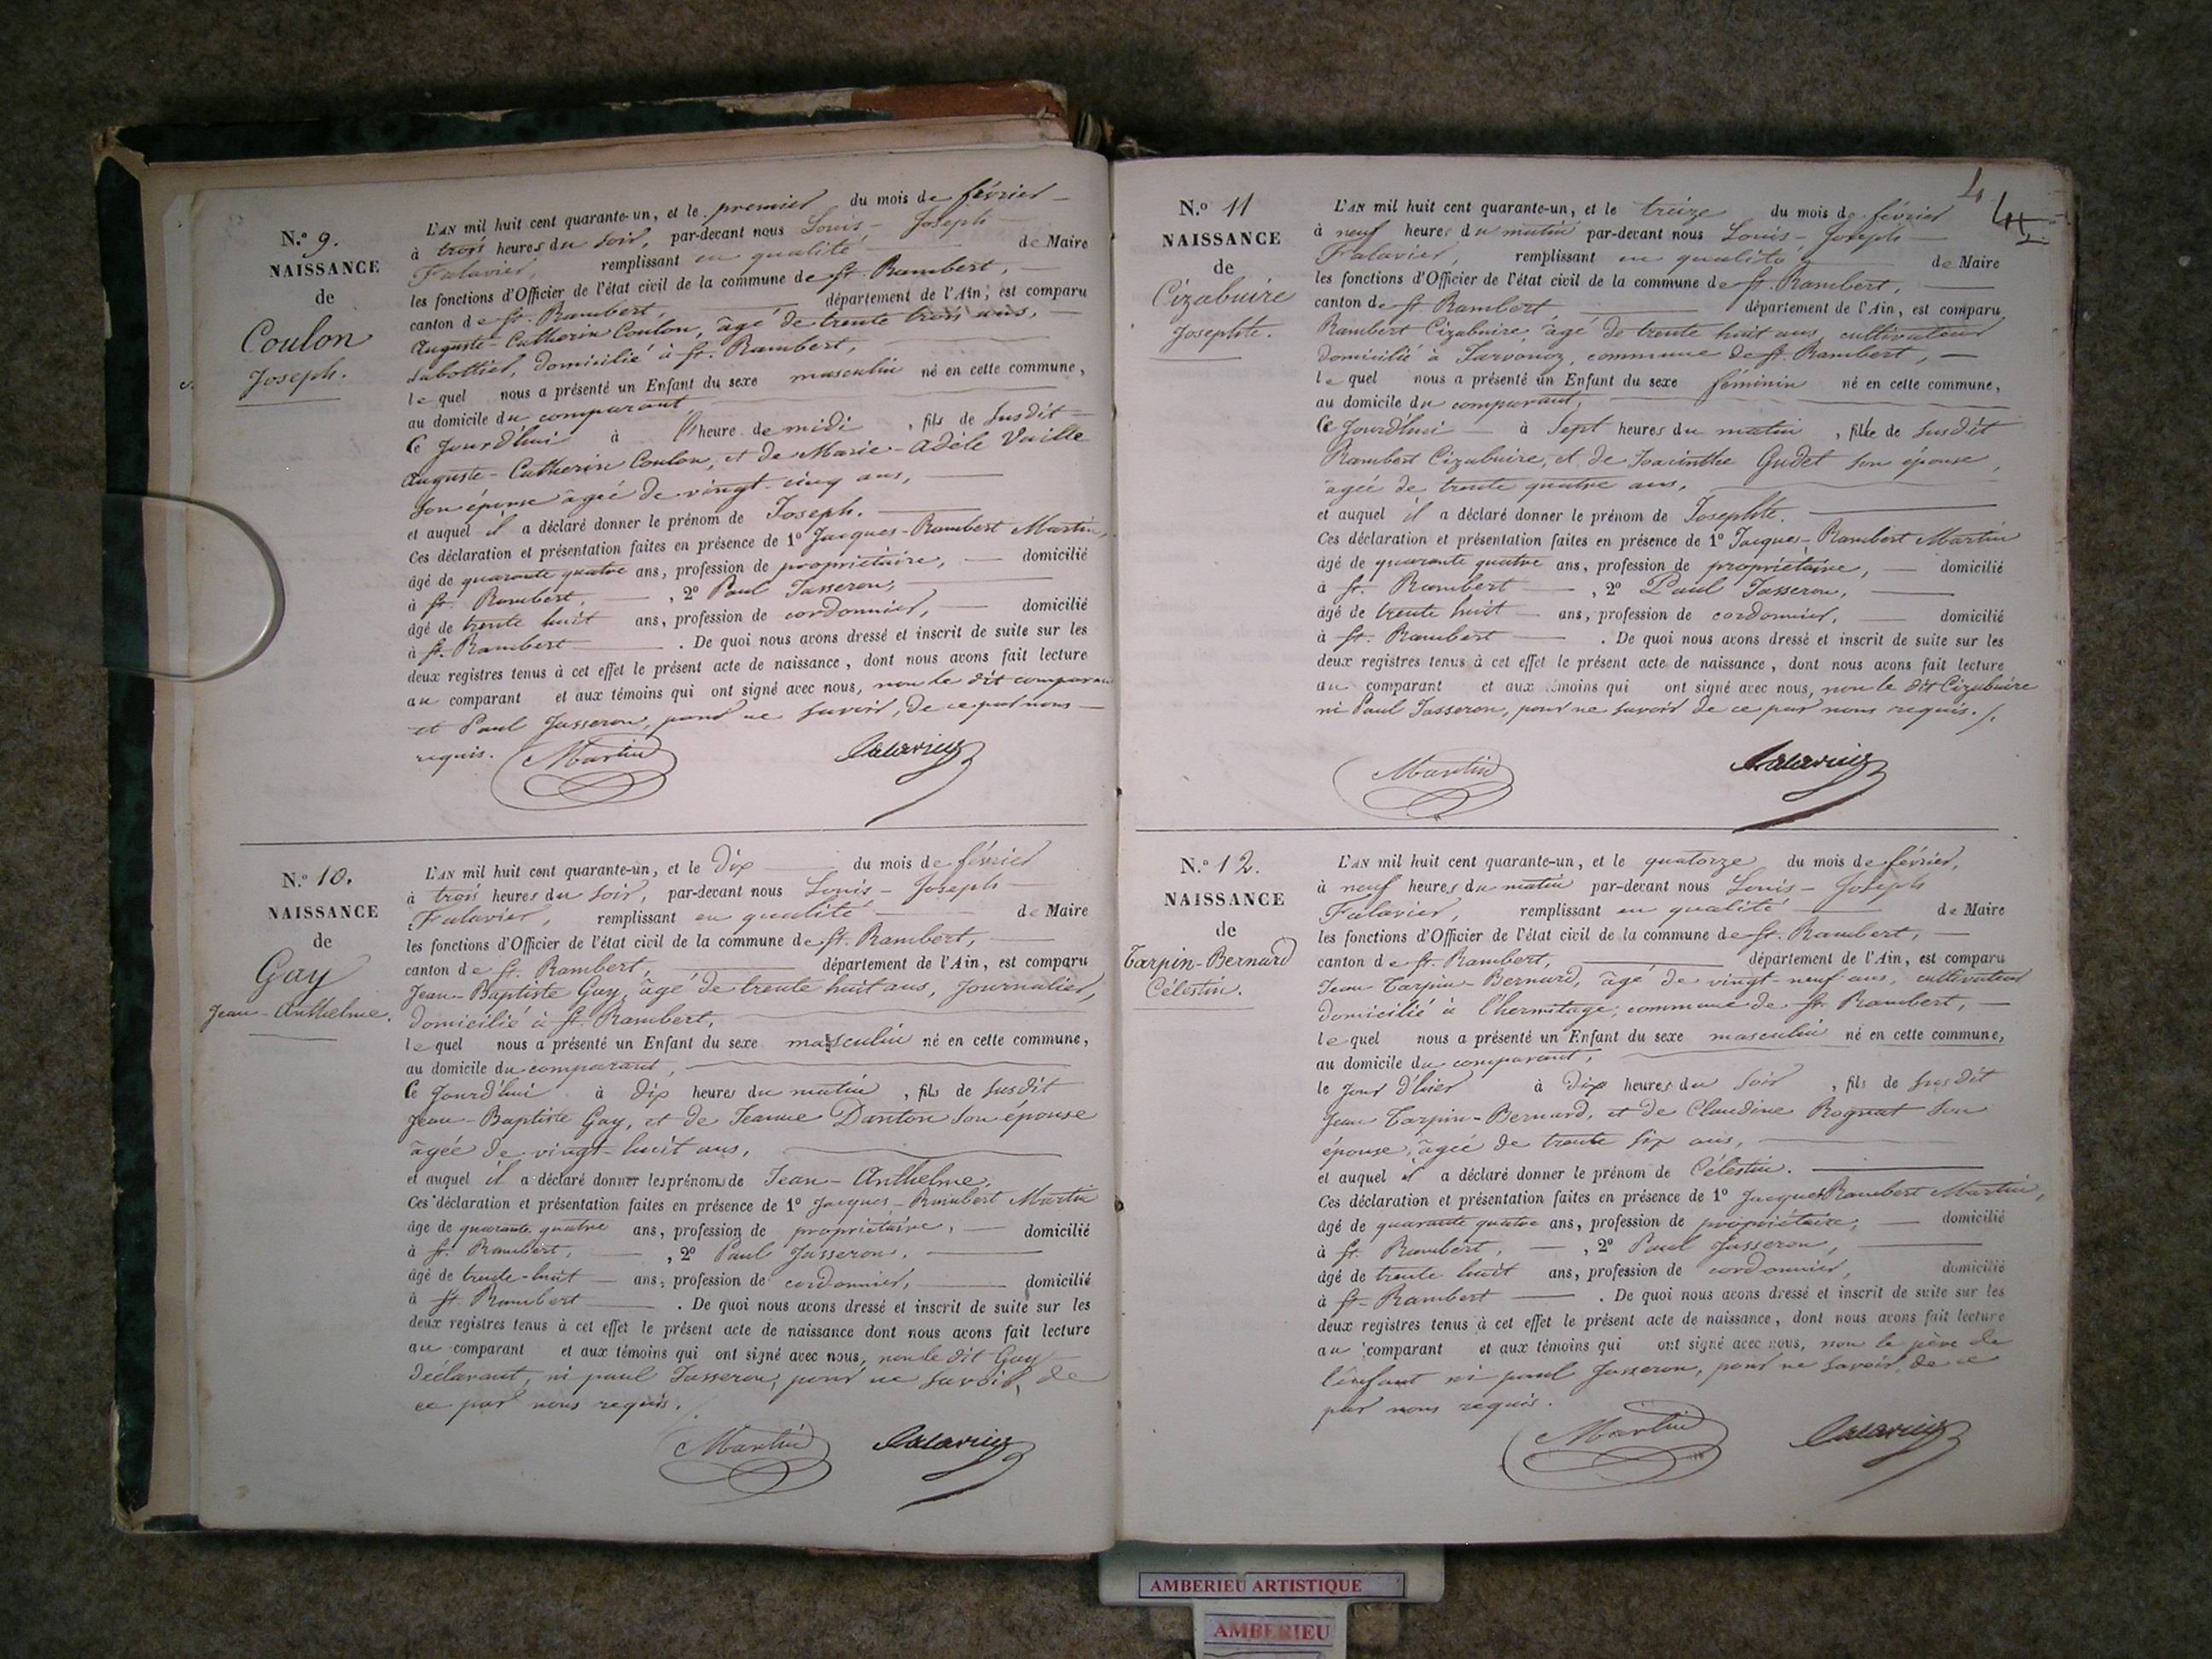 N.° 9.
NAISSANCE
de
Coulon
Joseph.
L'AN mil huit cent quarante-un, et le premier du mois de février
à trois heures du soir, par-devant nous Louis - Joseph
Falavier, remplissant en qualité de Maire
les fonctions d'Officier de l'état civil de la commune de St. Rambert,
canton de St. Rambert, département de l'Ain, est comparu
Auguste-Catherin Coulon, âgé de trente trois ans,
sabottier, domicilié à St. Rambert,
lequel nous a présenté un Enfant du sexe masculin né en cette commune,
au domicile du comparant,
ce jourd'hui à l'heure de midi, fils de susdit
Auguste-Catherin Coulon, et de Marie-Adèle Vuille
son épouse âgée de vingt-cinq ans,
et auquel il a déclaré donner le prénom de Joseph.
Ces déclaration et présentation faites en présence de 1° Jacques-Rambert Martin,
âgé de quarante quatre ans, profession de propriétaire, domicilié
à St. Rambert, , 2° Paul Jasseron,
âgé de trente huit ans, profession de cordonnier, domicilié
à St. Rambert . De quoi nous avons dressé et inscrit de suite sur les
deux registres tenus à cet effet le présent acte de naissance, dont nous avons fait lecture
au comparant et aux témoins qui ont signé avec nous, non le dit comparant
et Paul Jasseron, pour ne savoir, de ce par nous
requis. Martin Falavier
N.° 10.
NAISSANCE
de
Gay
Jean-Anthelme.
L'AN mil huit cent quarante-un, et le dix du mois de février
à trois heures du soir, par-devant nous Louis - Joseph
Falavier, remplissant en qualité de Maire
les fonctions d'Officier de l'état civil de la commune de St. Rambert,
canton de St. Rambert, département de l'Ain, est comparu
Jean-Baptiste Gay, âgé de trente huit ans, journalier,
domicilié à St. Rambert,
lequel nous a présenté un Enfant du sexe masculin né en cette commune,
au domicile du comparant,
ce jourd'hui à dix heures du matin, fils de susdit
Jean-Baptiste Gay, et de Jeanne Danton son épouse
âgée de vingt-huit ans,
et auquel il a déclaré donner les prénoms de Jean-Anthelme.
Ces déclaration et présentation faites en présence de 1° Jacques-Rambert Martin
âgé de quarante quatre ans, profession de propriétaire, domicilié
à St. Rambert, , 2° Paul Jasseron,
âgé de trente-huit ans, profession de cordonnier, domicilié
à St. Rambert . De quoi nous avons dressé et inscrit de suite sur les
deux registres tenus à cet effet le présent acte de naissance dont nous avons fait lecture
au comparant et aux témoins qui ont signé avec nous, non le dit Gay
déclarant, ni paul Jasseron, pour ne savoir, de
ce par nous requis.
Martin Falavier
4
N.° 11
NAISSANCE
de
Cizabuire
Josephte.
L'AN mil huit cent quarante-un, et le treize du mois de février
à neuf heures du matin par-devant nous Louis - Joseph
Falavier, remplissant en qualité de Maire
les fonctions d'Officier de l'état civil de la commune de St. Rambert,
canton de St. Rambert département de l'Ain, est comparu
Rambert Cizabuire, âgé de trente huit ans, cultivateur
domicilié à Sarvonoz, commune de St. Rambert,
lequel nous a présenté un Enfant du sexe féminin né en cette commune,
au domicile du comparant,
ce jourd'hui à sept heures du matin, fille de susdit
Rambert Cizabuire, et de Joacinthe Gudet son épouse,
âgée de trente quatre ans,
et auquel il a déclaré donner le prénom de Josephte.
Ces déclaration et présentation faites en présence de 1° Jacques-Rambert Martin
âgé de quarante quatre ans, profession de propriétaire, domicilié
à St. Rambert , 2° Paul Jasseron,
âgé de trente huit ans, profession de cordonnier, domicilié
à St. Rambert . De quoi nous avons dressé et inscrit de suite sur les
deux registres tenus à cet effet le présent acte de naissance, dont nous avons fait lecture
au comparant et aux témoins qui ont signé avec nous, non le dit Cizabuire
ni Paul Jasseron, pour ne savoir de ce par nous requis./.
Martin Falavier
N.° 12.
NAISSANCE
de
Tarpin-Bernard
Célestin.
L'AN mil huit cent quarante-un, et le quatorze du mois de février,
à neuf heures du matin par-devant nous Louis - Joseph
Falavier, remplissant en qualité de Maire
les fonctions d'Officier de l'état civil de la commune de St. Rambert,
canton de St. Rambert, département de l'Ain, est comparu
Jean Tarpin-Bernard, âgé de vingt-neuf ans, cultivateur
domicilié à l'hermitage, commune de St. Rambert,
lequel nous a présenté un Enfant du sexe masculin né en cette commune,
au domicile du comparant,
le jour d'hier à dix heures du soir, fils de susdit
Jean Tarpin-Bernard, et de Claudine Rognat son
épouse, âgée de trente six ans,
et auquel il a déclaré donner le prénom de Célestin.
Ces déclaration et présentation faites en présence de 1° Jacques Rambert Martin,
âgé de quarante quatre ans, profession de propriétaire, domicilié
à St. Rambert, , 2° Paul Jasseron,
âgé de trente huit ans, profession de cordonnier, domicilié
à St. Rambert . De quoi nous avons dressé et inscrit de suite sur les
deux registres tenus à cet effet le présent acte de naissance, dont nous avons fait lecture
au comparant et aux témoins qui ont signé avec nous, non le père de
l'enfant ni paul Jasseron, pour ne savoir, de ce
par nous requis.
Martin Falavier
AMBERIEU ARTISTIQUE
AMBERIEU